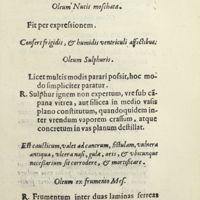 Oleum Nucis moschata.
Fit per expressionem.
Confert frigidis, & humidis ventriculi affectibus.
Oleum Sulphuris.
Licet multis modis parari possit, hoc mo-
do simpliciter paratur.
R. Sulphur ignem non expertum, vre sub cã
pana vitrea, aut silicea in medio vasis
plano constitutum, quandoquidem in-
ter vrendum vaporem crassum, atque
concretum in vas planum destillat.
Est causticum, valet ad cancrum, fistulam, vulnera
antiqua, vlcera nasi, gulæ, aris, & vbicunque
necessarium sit corrodere, & mortificare.
Oleum ex frumento Mes.
R. Frumentum inter duas laminas ferreas